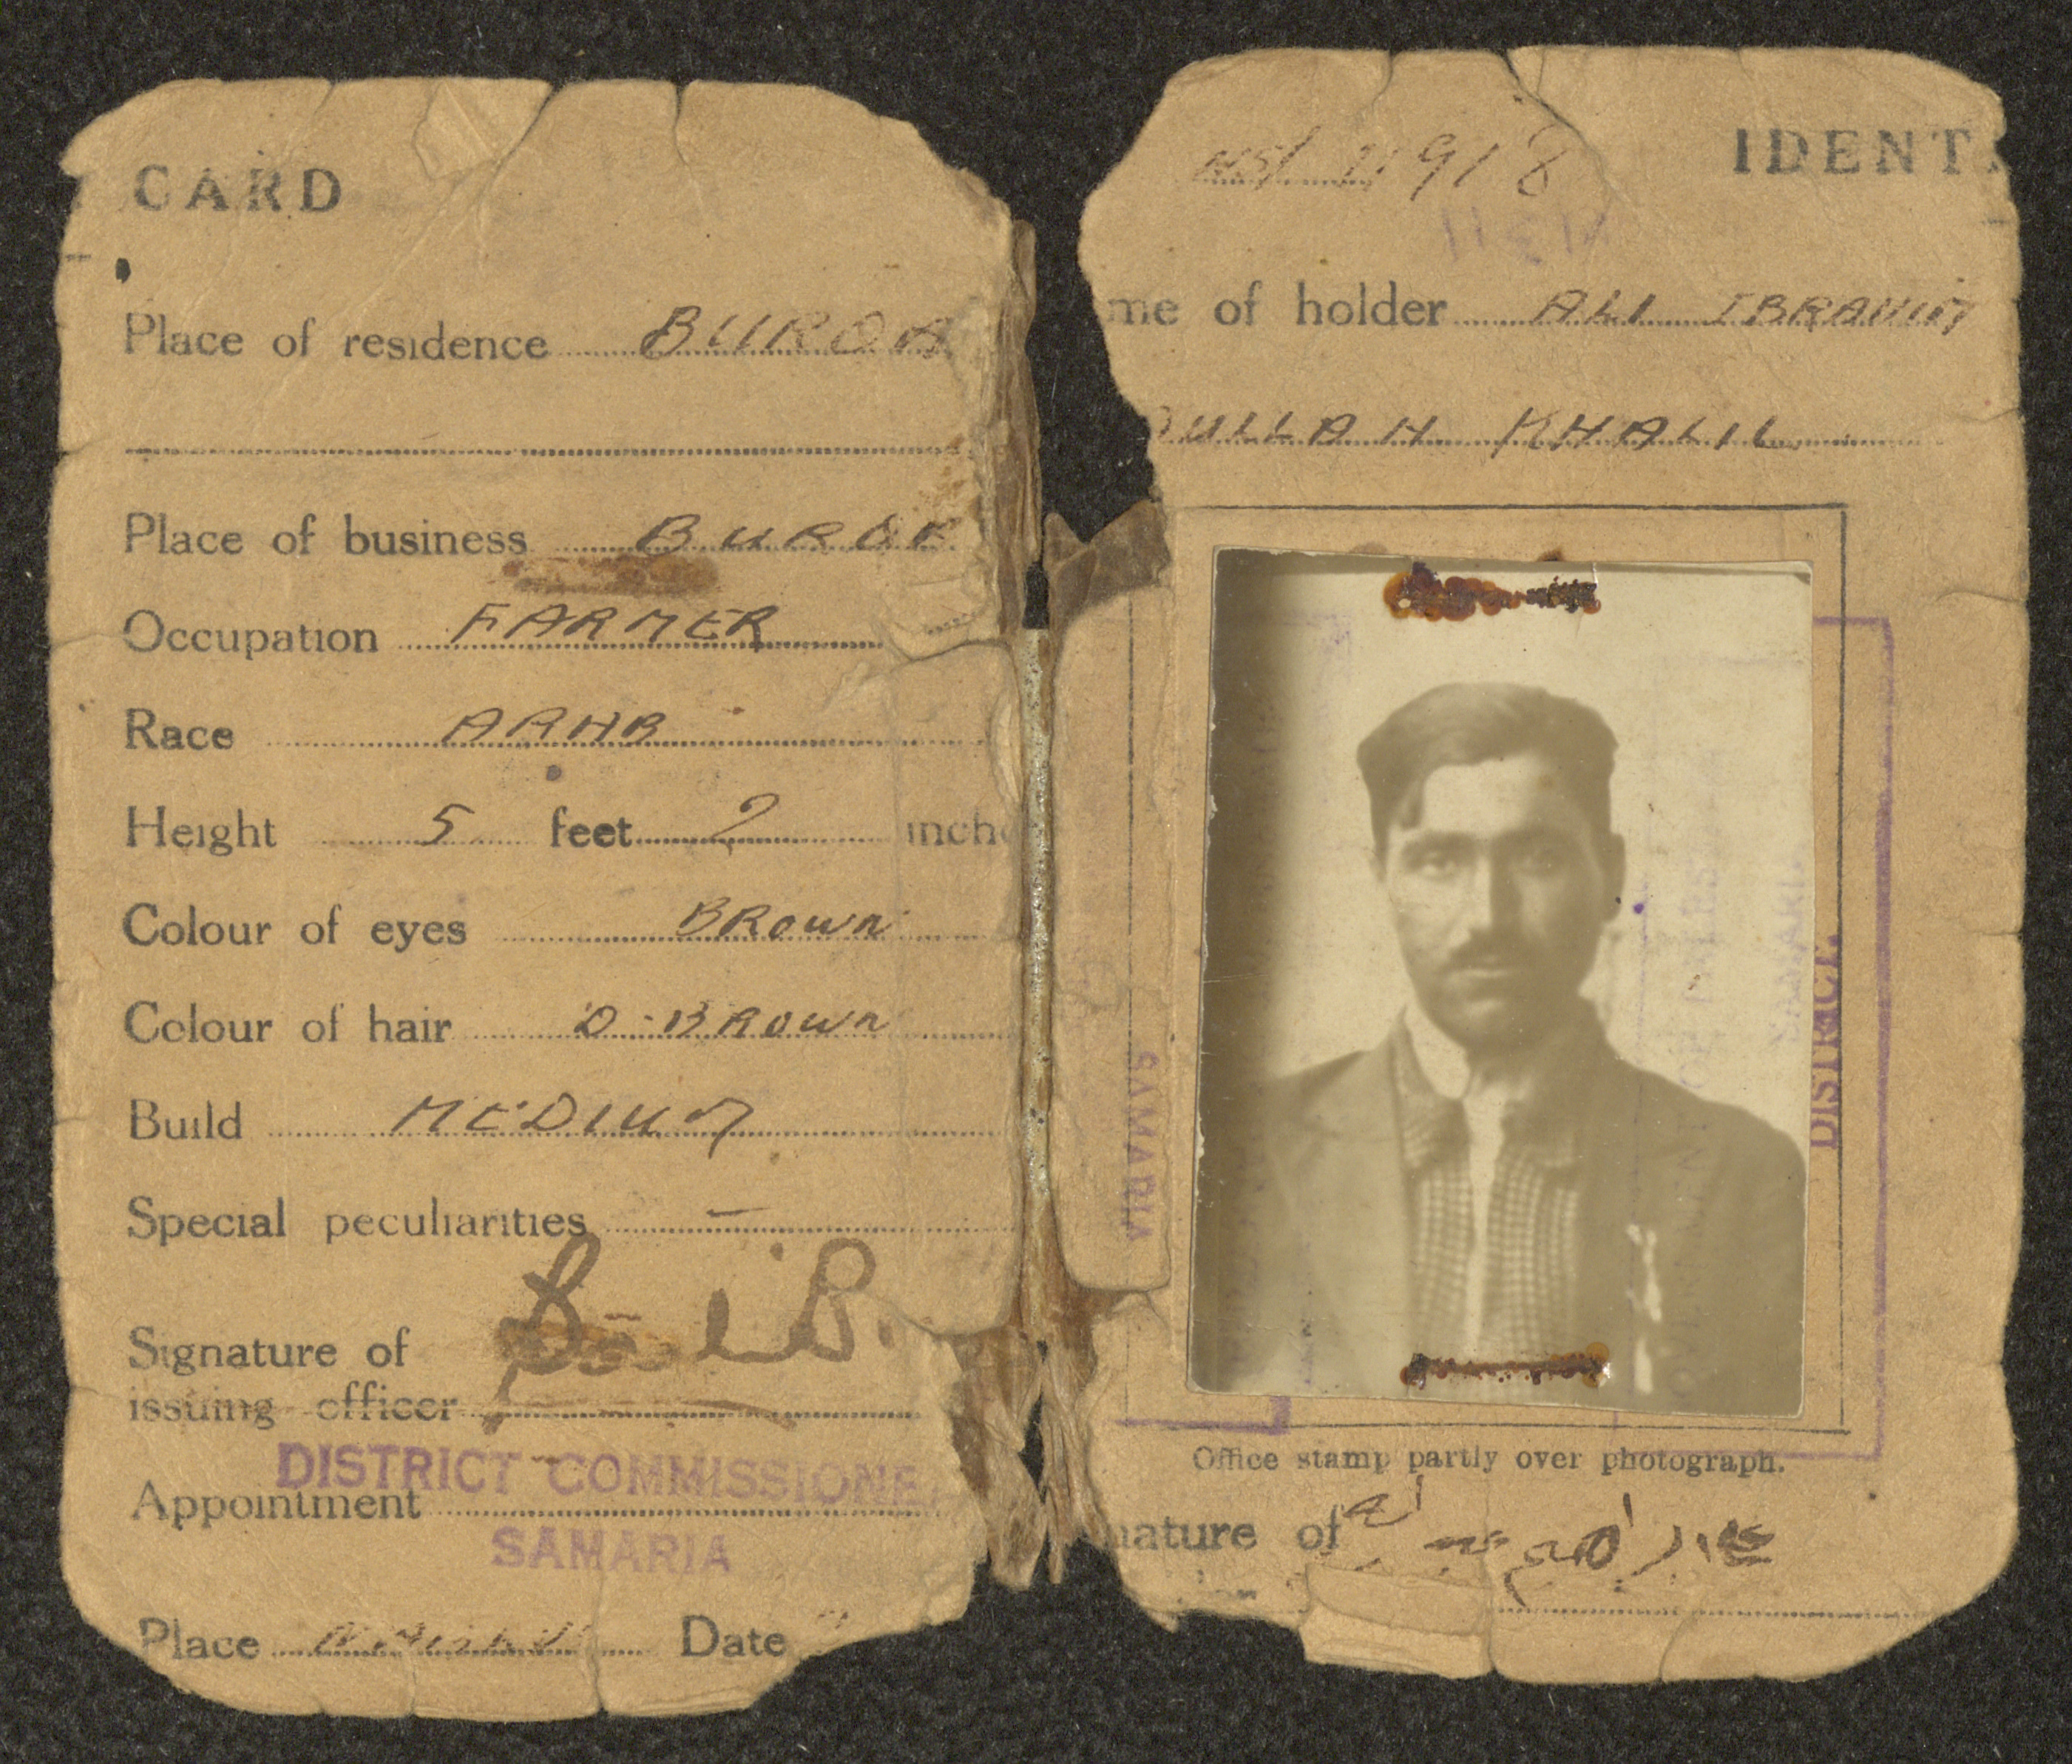 CARD
Place of residence BUROA
Place of business BURO
Occupation FARMER
Race ARAB
Height 5 feet 2 inch
Colour of eyes BROWN
Colour of hair D-BROWN
Build MEDIUM
Special peculiarities —
Signature of
issuing officer
DISTRICT COMMISSIONE
Appointment
SAMARIA
Place Date
918 IDENT
me of holder ALI IBRAHIM
ULLAH KHALIL
SAMARIA
DISTRICT
Office stamp partly over photograph.
nature of